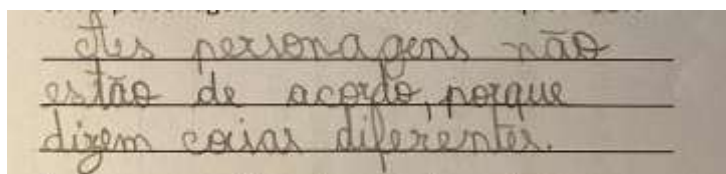 As personagens não
estão de acordo, porque
dizem coisas diferentes.